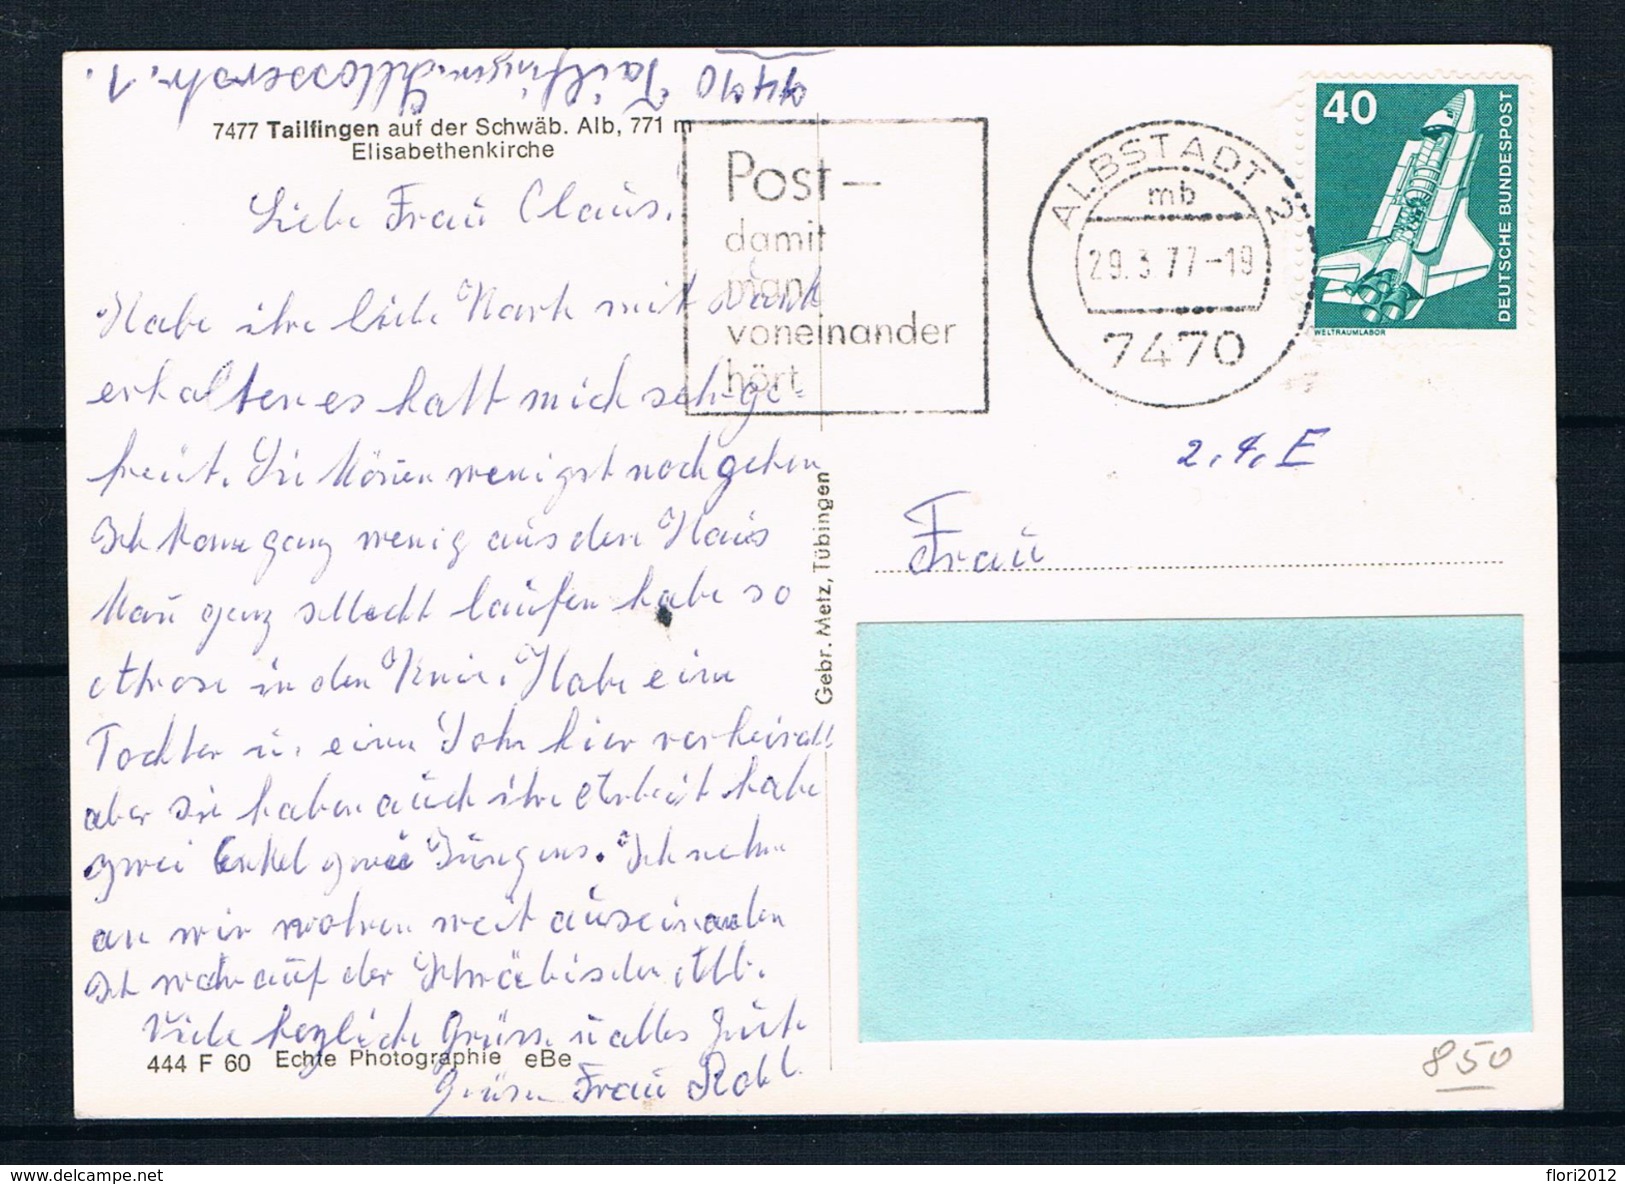 7470 Tailfingen Schlosserstr. 1.
7477 Tailfingen auf der Schwäb. Alb, 771 m
Elisabethenkirche
Liebe Frau Claus.
Habe ihre liebe Kark mit Dank
erhalten es hatt mich sehr ge-
freut. Sie können wenigst noch gehen
Ich kome ganz wenig aus den Haus
Kan ganz schlecht laufen habe so
Athrose in den Knie. Habe eine
Tochter u. einen Sohn hier verheirat.
aber sie haben auch ihre Arbeit habe
zwei Enkel zwei Jungens. Ich nehme
an wir wohnen weit auseinander
Ich wohne auf der Schwäbischen Alb.
Viele herzliche Grüsse u alles Gute
Grüsse Frau Rohl
444 F 60 Echte Photographie eBe
Gebr. Metz, Tübingen
Post-
damit
man
voneinander
hört
ALBSTADT 2
mb
29.3.77-19
7470
40
DEUTSCHE BUNDESPOST
WELTRAUMLABOR
2.4. E
Frau
850
delcampe.net
flori2012